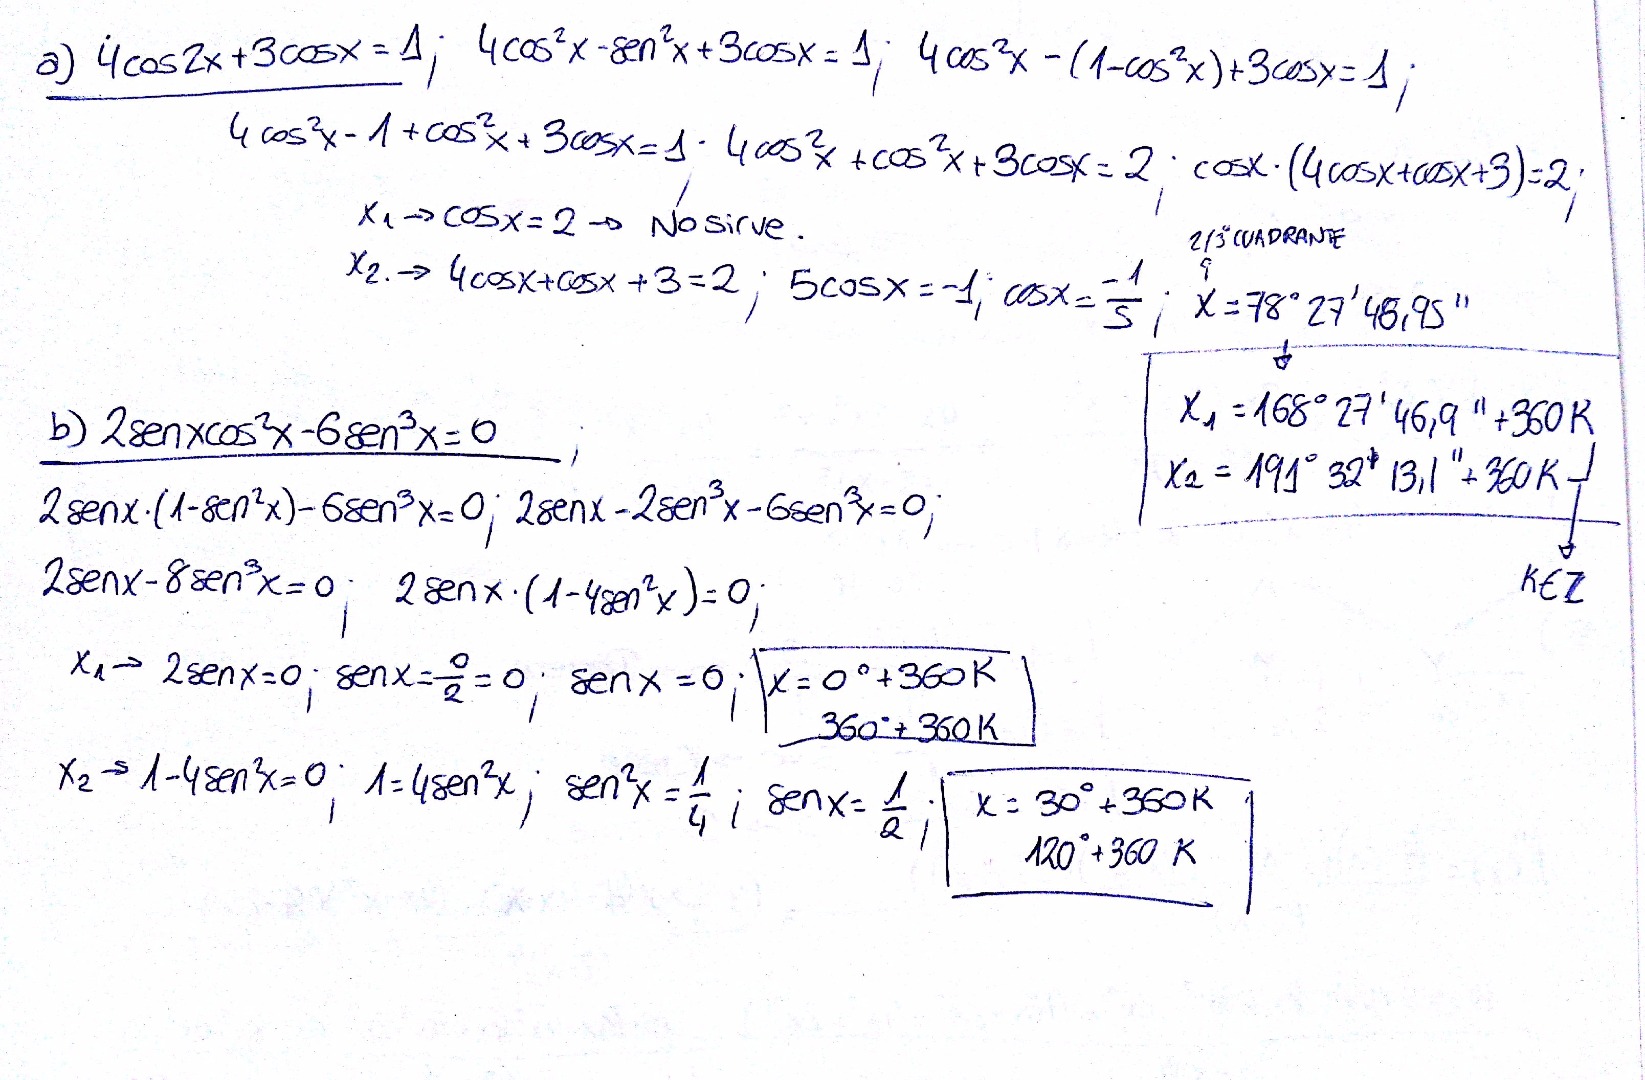 a) 4cos2x+3cosx=1; 4cos²x-sen²x+3cosx=1; 4cos²x-(1-cos²x)+3cosx=1;
4cos²x-1+cos²x+3cosx=1; 4cos²x+cos²x+3cosx=2; cosx·(4cosx+cosx+3)=2;
x₁→cosx=2→ No sirve.
2/3º CUADRANTE
x₂.→ 4cosx+cosx+3=2; 5cosx=-1; cosx=-1/5; x=78°27'46,95"
x₁=168°27'46,9"+360K
x₂=191°32'13,1"+360K
K∈Z
b) 2senxcos²x-6sen³x=0;
2senx·(1-sen²x)-6sen³x=0; 2senx-2sen³x-6sen³x=0;
2senx-8sen³x=0; 2senx·(1-4sen²x)=0;
x₁→ 2senx=0; senx=0/2=0; senx=0; x=0°+360K
360°+360K
x₂→1-4sen²x=0; 1=4sen²x; sen²x=1/4; senx=1/2; x=30°+360K
120°+360K